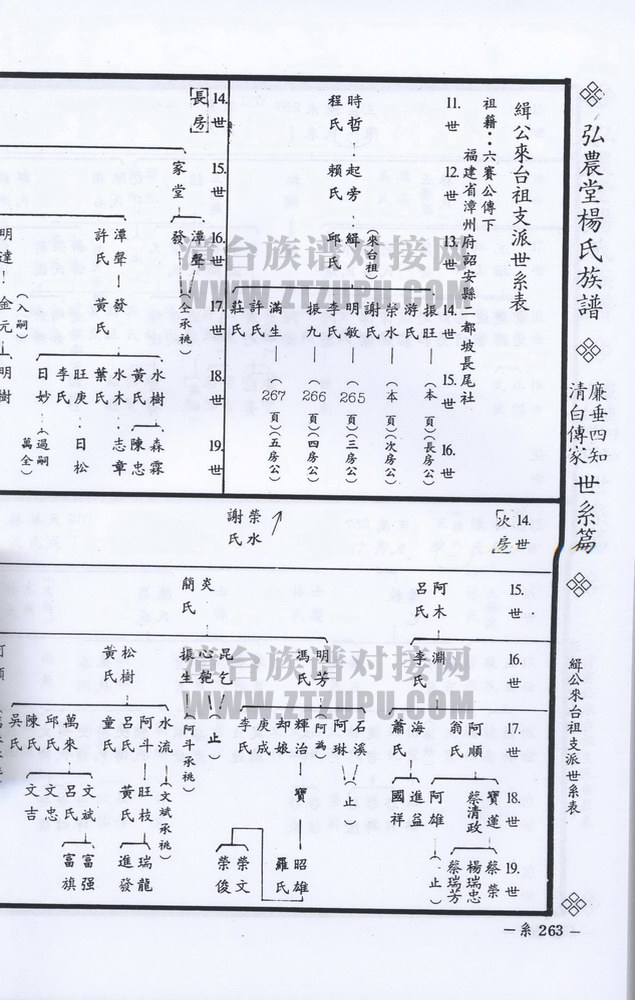 弘農堂楊氏族譜
廉垂四知
清白傳家
世系篇
緝公來台祖支派世系表
系263
緝公來台祖支派世系表
祖籍：六賽公傳下
福建省漳州府詔安縣二都坡長尾社
11.世
12.世
13.世
14.世
15.世
16.世
時哲
程氏
起旁
賴氏
緝
邱氏
(來台祖)
振旺
游氏
(本頁)(長房公)
榮水
謝氏
(本頁)(次房公)
明敏
李氏
(265頁)(三房公)
振九
(266頁)(四房公)
滿生
許氏
莊氏
(267頁)(五房公)
14.世
[長房]
15.世
16.世
17.世
18.世
19.世
家堂
潭聲
發
(仝承祧)
潭聲
許氏
發
黃氏
明達
金元
(入嗣)
明樹
水樹
黃氏
水木
葉氏
旺庚
李氏
日妙
森霖
陳忠
志章
日松
(過嗣萬全)
14.世
[次房]
榮水
謝氏
15.世
阿木
呂氏
炎
簡氏
16.世
淵
李氏
明芳
馮氏
昆乞
心匏
振生
松樹
黃氏
17.世
阿順
翁氏
海
蕭氏
石溪
阿琳
(止)
輝治
却娘
庚成
李氏
(止)
(阿斗承祧)
水流
(文斌承祧)
阿斗
呂氏
童氏
萬來
邱氏
陳氏
吳氏
18.世
寶運
蔡清政
阿雄
進益
國祥
寶
旺枝
黃氏
文斌
呂氏
文忠
文吉
19.世
蔡榮
楊瑞忠
蔡瑞芳
(止)
昭雄
羅氏
榮文
榮俊
瑞龍
進發
富强
富旗
浔台族谱对接网
WWW.ZTZUPU.COM
浔台族谱对接网
WWW.ZTZUPU.COM